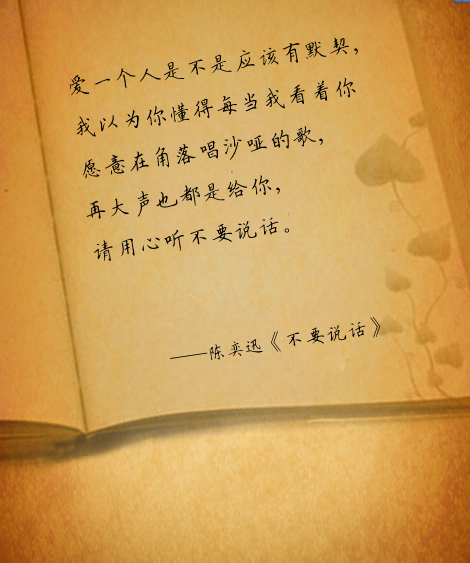 爱一个人是不是应该有默契，
我以为你懂得每当我看着你
愿意在角落唱沙哑的歌，
再大声也都是给你，
请用心听不要说话。
——陈奕迅《不要说话》